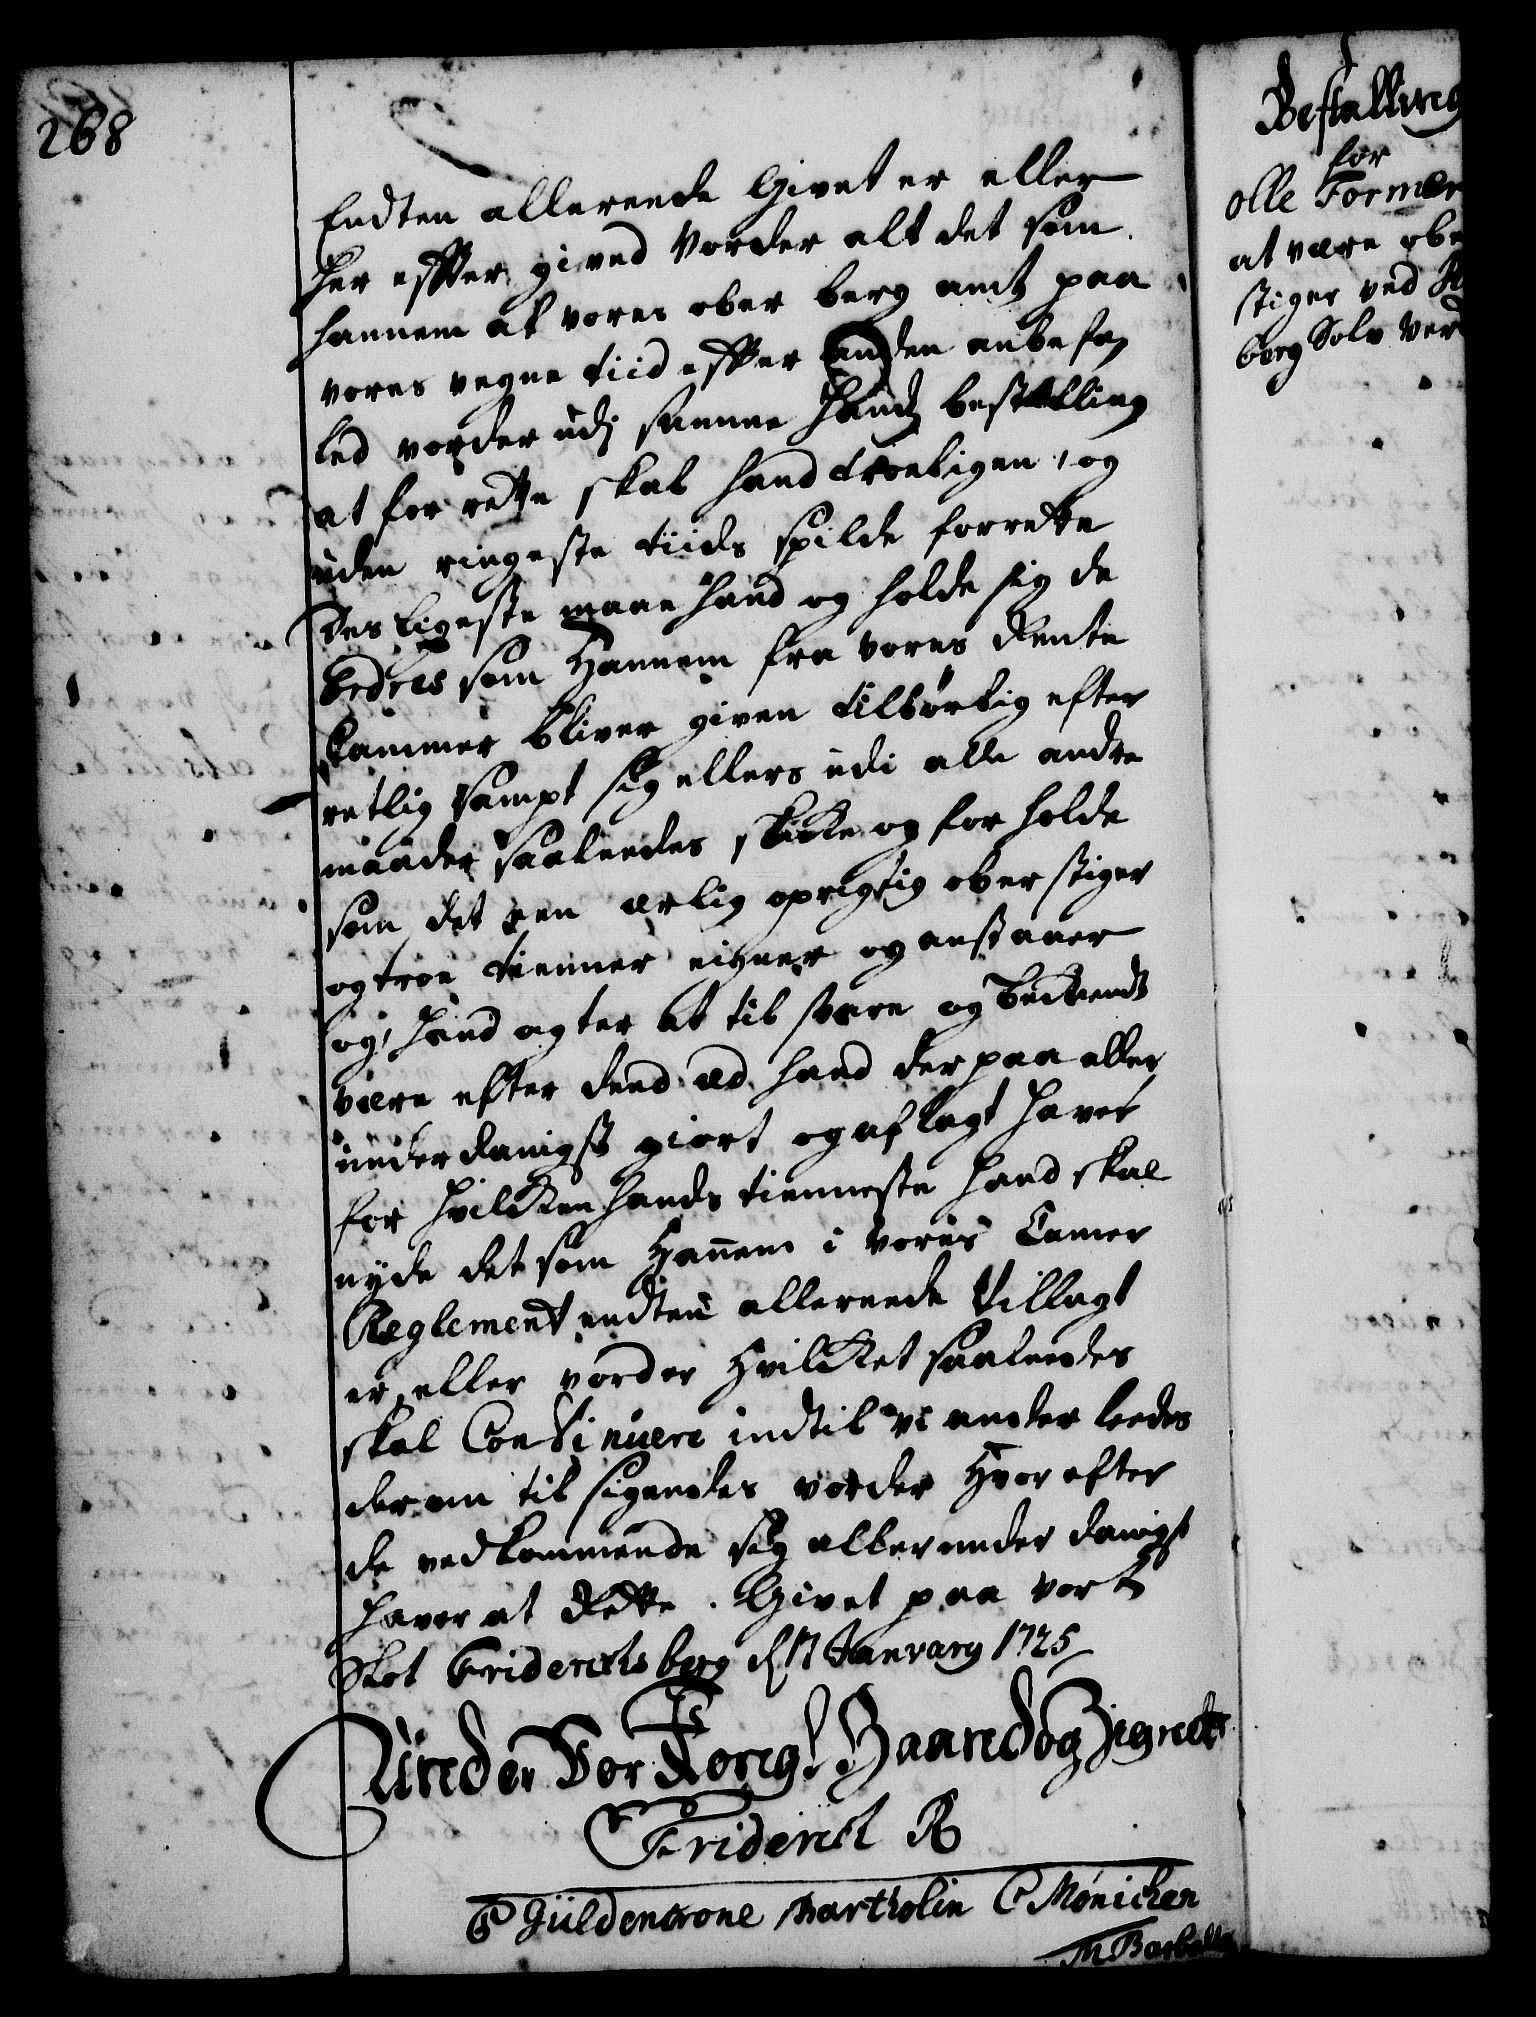 268
Endten allereede Givet er eller
her effter gived Vorder alt det som
hannem af vores ober berg amt paa
vores vegne tiid effter anden anbefa¬
led vorder udj samme hands bestalling
at for rette skal hand troeligen, og
uden ringeste tiids spilde forrette
Des ligeste maae hand og holde sig de
Ordres som Hannem fra vores Rente
Cammer bliver given tilbørlig efter
retlig sampt sig ellers udi alle andre
maader saaleedes skikke og for holde
som det een ærlig oprigtig ober stiger
og troe tienner eigner og anstaaer
og, hand agter at til svare og bekiendt
være efter dend æd hand der paa aller
underdanigst giort og aflagt haver
for hvilken hands tienneste hand skal
nyde det som Hannem i vores Camer
Reglement endten allereede tillagt
er, eller vorder Hvilket saaleedes
skal Continuere indtil vi anderleedes
derom til sigendes vorder Hvor efter
de vedkommende sig allerunder danigst
haver at Rette. Givet paa vort
Slot Friderichsberg d 17 Janvary 1725
Under Vor Kongl. Haand og Zignet
Friderich R
Güldencrone Bartholin C Mønichen
Bestalling
for
olle Former
at være obe
stiger ved
berg Sølv Ver